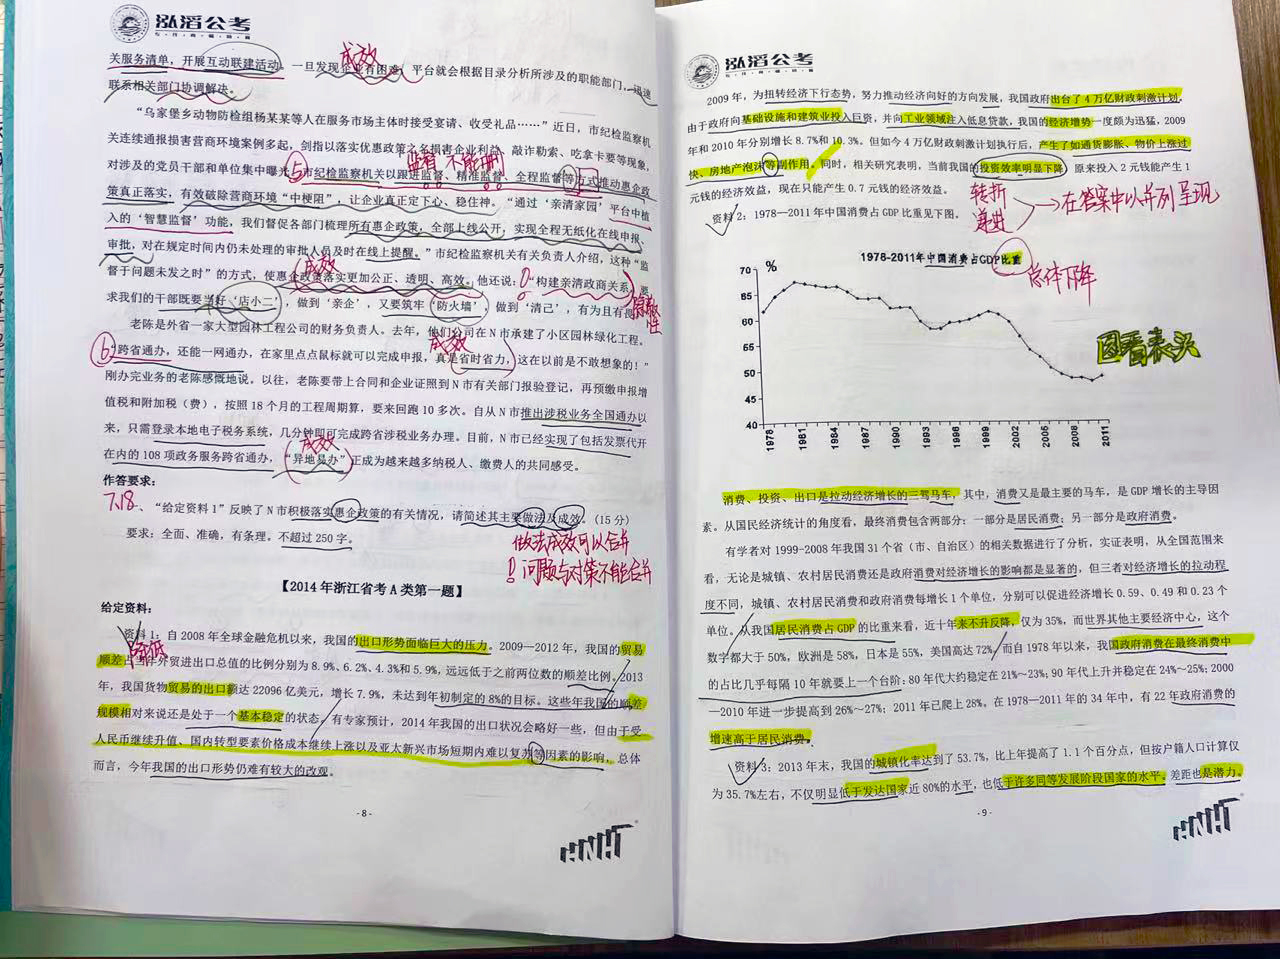 泓滔公考
关服务清单，开展互动联建活动。一旦发现企业有困难，平台就会根据目录分析所涉及的职能部门，迅速
成效
联系相关部门协调解决。
“乌家堡乡动物防检组杨某某等人在服务市场主体时接受宴请、收受礼品……”近日，市纪检监察机
关连续通报损害营商环境案例多起，剑指以落实优惠政策之名损害企业利益、敲诈勒索、吃拿卡要等现象，
监督 不能删
对涉及的党员干部和单位集中曝光。市纪检监察机关以跟进监督、精准监督、全程监督等方式推动惠企政
⑤
策真正落实，有效破除营商环境“中梗阻”，让企业真正定下心、稳住神。“通过‘亲清家园’平台中植
入的‘智慧监督’功能，我们督促各部门梳理所有惠企政策，全部上线公开，实现全程无纸化在线申报、
审批，对在规定时间内仍未处理的审批人员及时在线上提醒。”市纪检监察机关有关负责人介绍，这种“监
成效
督于问题未发之时”的方式，使惠企政策落实更加公正、透明、高效。他还说：“构建亲清政商关系，要
求我们的干部既要当好‘店小二’，做到‘亲企’，又要筑牢‘防火墙’，做到‘清己’，有为且有畏
老陈是外省一家大型园林工程公司的财务负责人。去年，他们公司在 N 市承建了小区园林绿化工程。
成效
⑥
“跨省通办，还能一网通办，在家里点点鼠标就可以完成申报，真是省时省力，这在以前是不敢想象的！”
刚办完业务的老陈感慨地说。以往，老陈要带上合同和企业证照到 N 市有关部门报验登记，再预缴申报增
值税和附加税（费），按照 18 个月的工程周期算，要来回跑 10 多次。自从 N 市推出涉税业务全国通办以
来，只需登录本地电子税务系统，几分钟即可完成跨省涉税业务办理。目前，N 市已经实现了包括发票代开
成效
在内的 108 项政务服务跨省通办，“异地易办”正成为越来越多纳税人、缴费人的共同感受。
作答要求：
7.18
、“给定资料 1”反映了 N 市积极落实惠企政策的有关情况，请简述其主要做法及成效。（15 分）
要求：全面、准确，有条理。不超过 250 字。
做法成效可以合并
！问题与对策不能合并
【2014 年浙江省考 A 类第一题】
给定资料：
资料 1：自 2008 年全球金融危机以来，我国的出口形势面临巨大的压力。2009—2012 年，我国的贸易
降低
顺差占当年外贸进出口总值的比例分别为 8.9%、6.2%、4.3%和 5.9%，远远低于之前两位数的顺差比例。2013
年，我国货物贸易的出口额达 22096 亿美元，增长 7.9%，未达到年初制定的 8%的目标。这些年我国的顺差
规模相对来说还是处于一个基本稳定的状态。有专家预计，2014 年我国的出口状况会略好一些，但由于受
人民币继续升值、国内转型要素价格成本继续上涨以及亚太新兴市场短期内难以复苏等因素的影响，总体
而言，今年我国的出口形势仍难有较大的改观。
- 8 -
泓滔公考
2009 年，为扭转经济下行态势，努力推动经济向好的方向发展，我国政府出台了 4 万亿财政刺激计划，
由于政府向基础设施和建筑业投入巨资，并向工业领域注入低息贷款，我国的经济增势一度颇为迅猛，2009
年和 2010 年分别增长 8.7%和 10.3%。但如今 4 万亿财政刺激计划执行后，产生了如通货膨胀、物价上涨过
快、房地产泡沫等副作用。同时，相关研究表明，当前我国的投资效率明显下降，原来投入 2 元钱能产生 1
元钱的经济效益，现在只能产生 0.7 元钱的经济效益。
转折
递进
→在答案中以并列呈现
资料 2：1978—2011 年中国消费占 GDP 比重见下图。
1978-2011年中国消费占GDP比重
总体下降
%
70
65
60
55
50
45
40
1978
1981
1984
1987
1990
1993
1996
1999
2002
2005
2008
2011
图看表头
消费、投资、出口是拉动经济增长的三驾马车，其中，消费又是最主要的马车，是 GDP 增长的主导因
素。从国民经济统计的角度看，最终消费包含两部分：一部分是居民消费；另一部分是政府消费。
有学者对 1999-2008 年我国 31 个省（市、自治区）的相关数据进行了分析，实证表明，从全国范围来
看，无论是城镇、农村居民消费还是政府消费对经济增长的影响都是显著的，但三者对经济增长的拉动程
度不同，城镇、农村居民消费和政府消费每增长 1 个单位，分别可以促进经济增长 0.59、0.49 和 0.23 个
单位。从我国居民消费占 GDP 的比重来看，近十年来不升反降，仅为 35%，而世界其他主要经济中心，这个
数字都大于 50%，欧洲是 58%，日本是 55%，美国高达 72%，而自 1978 年以来，我国政府消费在最终消费中
的占比几乎每隔 10 年就要上一个台阶：80 年代大约稳定在 21%～23%；90 年代上升并稳定在 24%～25%；2000
—2010 年进一步提高到 26%～27%；2011 年已爬上 28%。在 1978—2011 年的 34 年中，有 22 年政府消费的
增速高于居民消费。
资料 3：2013 年末，我国的城镇化率达到了 53.7%，比上年提高了 1.1 个百分点，但按户籍人口计算仅
为 35.7%左右，不仅明显低于发达国家近 80%的水平，也低于许多同等发展阶段国家的水平。差距也是潜力。
- 9 -